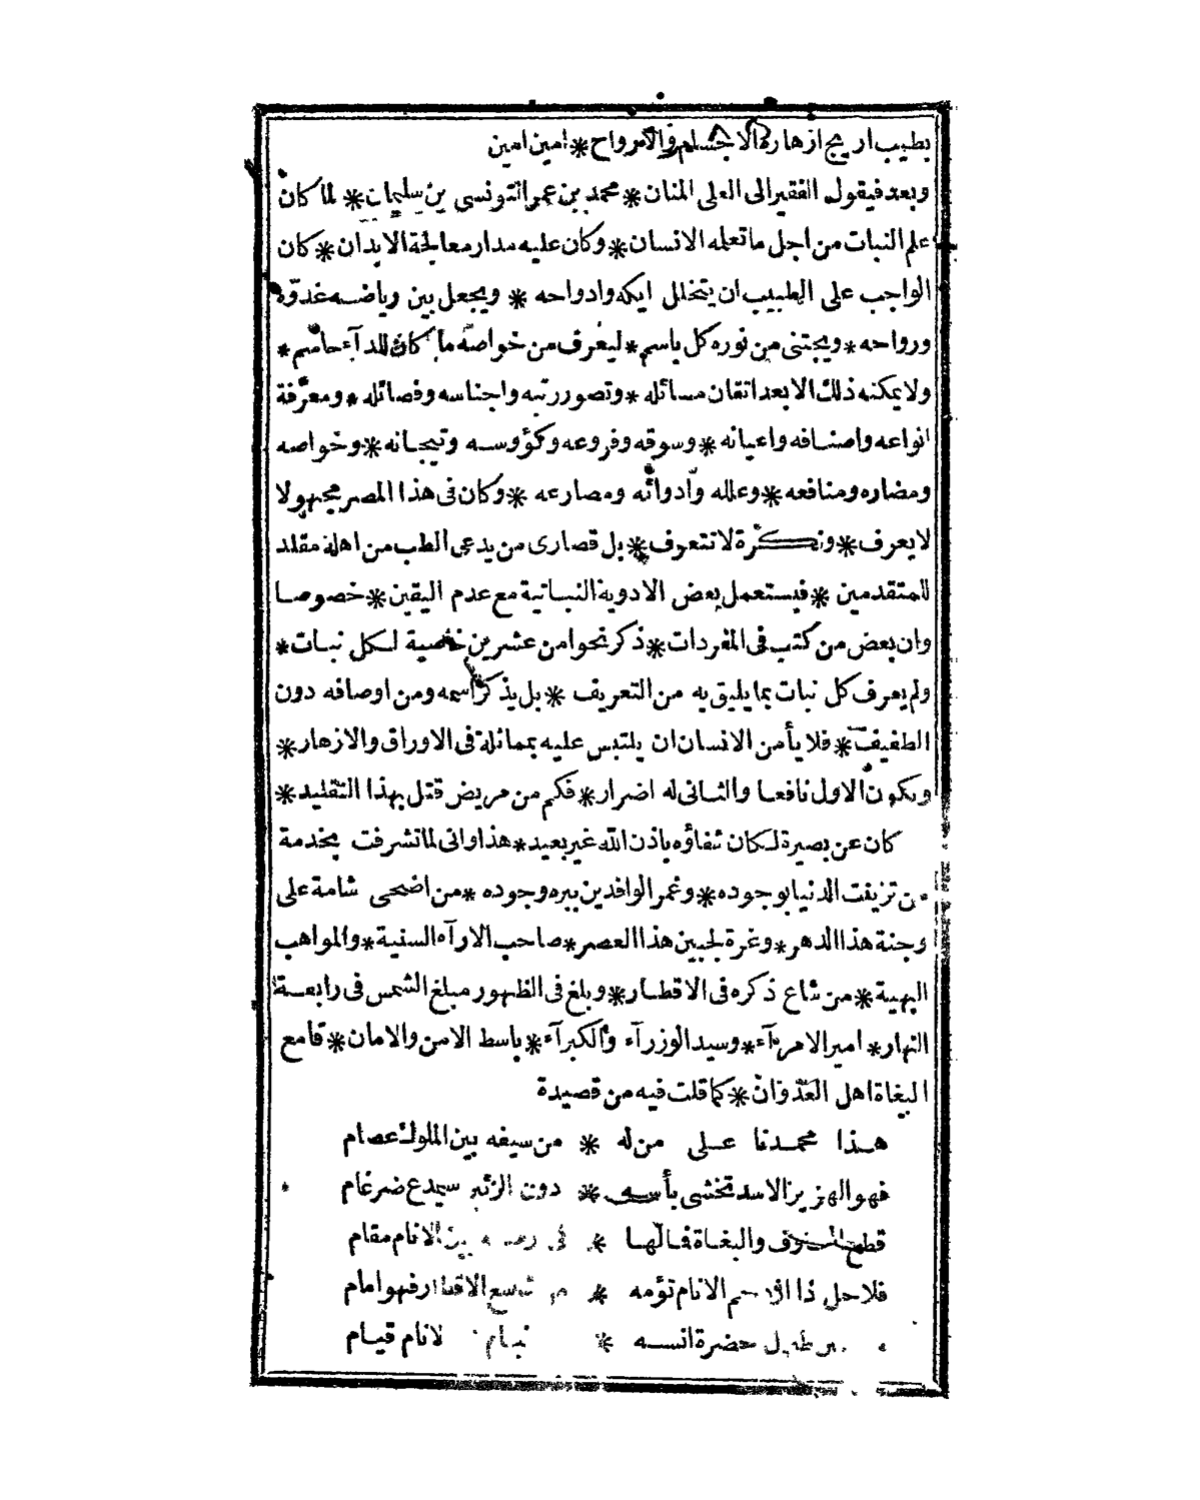 بطيب اريج ازهاره الاجسام والارواح * امين امين
وبعد فيقول الفقير الى العلى المنان * محمد بن عمر التونسى بن سليمان * لما كان
علم النبات من اجل ما تعلمه الانسان * وكان عليه مدار معالجة الابدان * كان
الواجب على الطبيب ان يتخلل ايكه وادواحه * ويجعل بين رياضه غدوّه
ورواحه * ويجتنى من نوره كل باسم * ليعرف من خواصه ما كان للدآء حاسم *
ولا يمكنه ذلك الا بعد اتقان مسائله * وتصور رتبه واجناسه وفصائله * ومعرفة
انواعه واصنافه واعيانه * وسوقه وفروعه وكؤوسه وتيجانه * وخواصه
ومضاره ومنافعه * وعلله وأدوائه ومصارعه * وكان فى هذا المصر مجهولا
لا يعرف * ونكرة لا تتعرف * بل قصارى من يدعى الطب من اهله مقلد
للمتقدمين * فيستعمل بعض الادوية النباتية مع عدم اليقين * خصوصا
وان بعض من كتب فى المفردات * ذكر نحوا من عشرين خصية لكل نبات *
ولم يعرف كل نبات بما يليق به من التعريف * بل يذكر اسمه ومن اوصافه دون
الطفيف * فلا يأمن الانسان ان يلتبس عليه بمماثلة فى الاوراق والازهار *
ويكون الاول نافعا والثانى له اضرار * فكم من مريض قتل بهذا التقليد *
كان عن بصيرة لكان شفاؤه باذن الله غير بعيد * هذا وانى لما تشرفت بخدمة
من تزيفت الدنيا بوجوده * وغمر الوافدين ببره وجوده * من اضحى شامة على
وجنة هذا الدهر * وغرة لجبين هذا العصر * صاحب الارآء السنية * والمواهب
البهية * من شاع ذكره فى الاقطار * وبلغ فى الظهور مبلغ الشمس فى رابعة
النهار * امير الامرآء * وسيد الوزرآء والكبرآء * باسط الامن والامان * قامع
البغاة اهل العدوان * كما قلت فيه من قصيدة
هذا محمدنا على من له * من سيفه بين الملوك عصام
فهو الهزبر الاسد تخشى بأسه * دون الزئير سميدع ضرغام
قطع والبغاة فمالها * فى بين الانام مقام
فلاحل ذا الانام تؤمه * شاسع الاقطار فهو امام
حضرة انسه * نيام لانام قيام